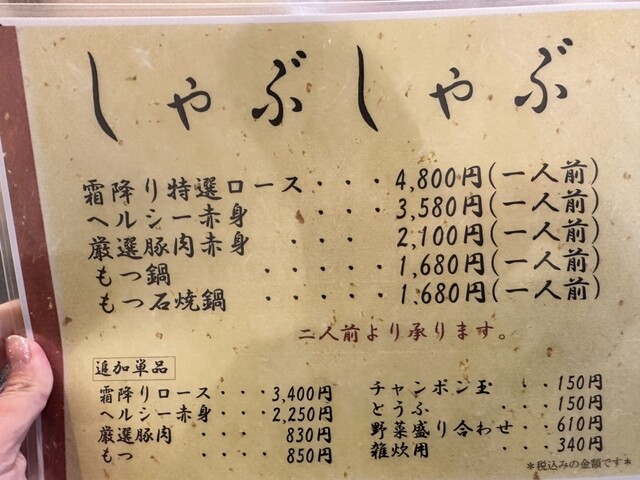 しゃぶしゃぶ
霜降り特選ロース・・・4,800円(一人前)
ヘルシー赤身・・・・3,580円(一人前)
厳選豚肉赤身・・・・2,100円(一人前)
もつ鍋・・・・・1,680円(一人前)
もつ石焼鍋・・・・・1.680円(一人前)
二人前より承ります。
追加単品
霜降りロース・・・3,400円
ヘルシー赤身・・・2,250円
厳選豚肉・・・・830円
もつ・・・・850円
チャンポン玉・・150円
とうふ・・・150円
野菜盛り合わせ・・610円
雑炊用・・・340円
*税込みの金額です*